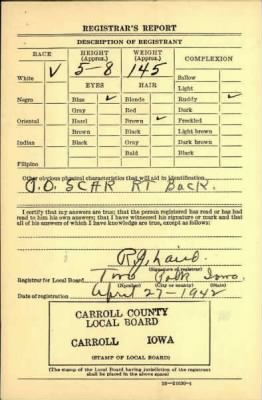 REGISTRAR'S REPORT
DESCRIPTION OF REGISTRANT
RACE HEIGHT (Approx.) WEIGHT (Approx.) COMPLEXION
White ✓ 5-8 145 Sallow
EYES HAIR Light
Negro Blue ✓ Blonde Ruddy ✓
Gray Red Dark
Oriental Hazel Brown ✓ Freckled
Brown Black Light brown
Indian Black Gray Dark brown
Bald Black
Filipino
Other obvious physical characteristics that will aid in identification
SCAR RT Back.
I certify that my answers are true; that the person registered has read or has had
read to him his own answers; that I have witnessed his signature or mark and that
all of his answers of which I have knowledge are true, except as follows:
(Signature of registrar)
Registrar for Local Board Two Polk Iowa.
(Number) (City or county) (State)
Date of registration April 27-1942
CARROLL COUNTY
LOCAL BOARD
CARROLL IOWA
(STAMP OF LOCAL BOARD)
(The stamp of the Local Board having jurisdiction of the registrant
shall be placed in the above space)